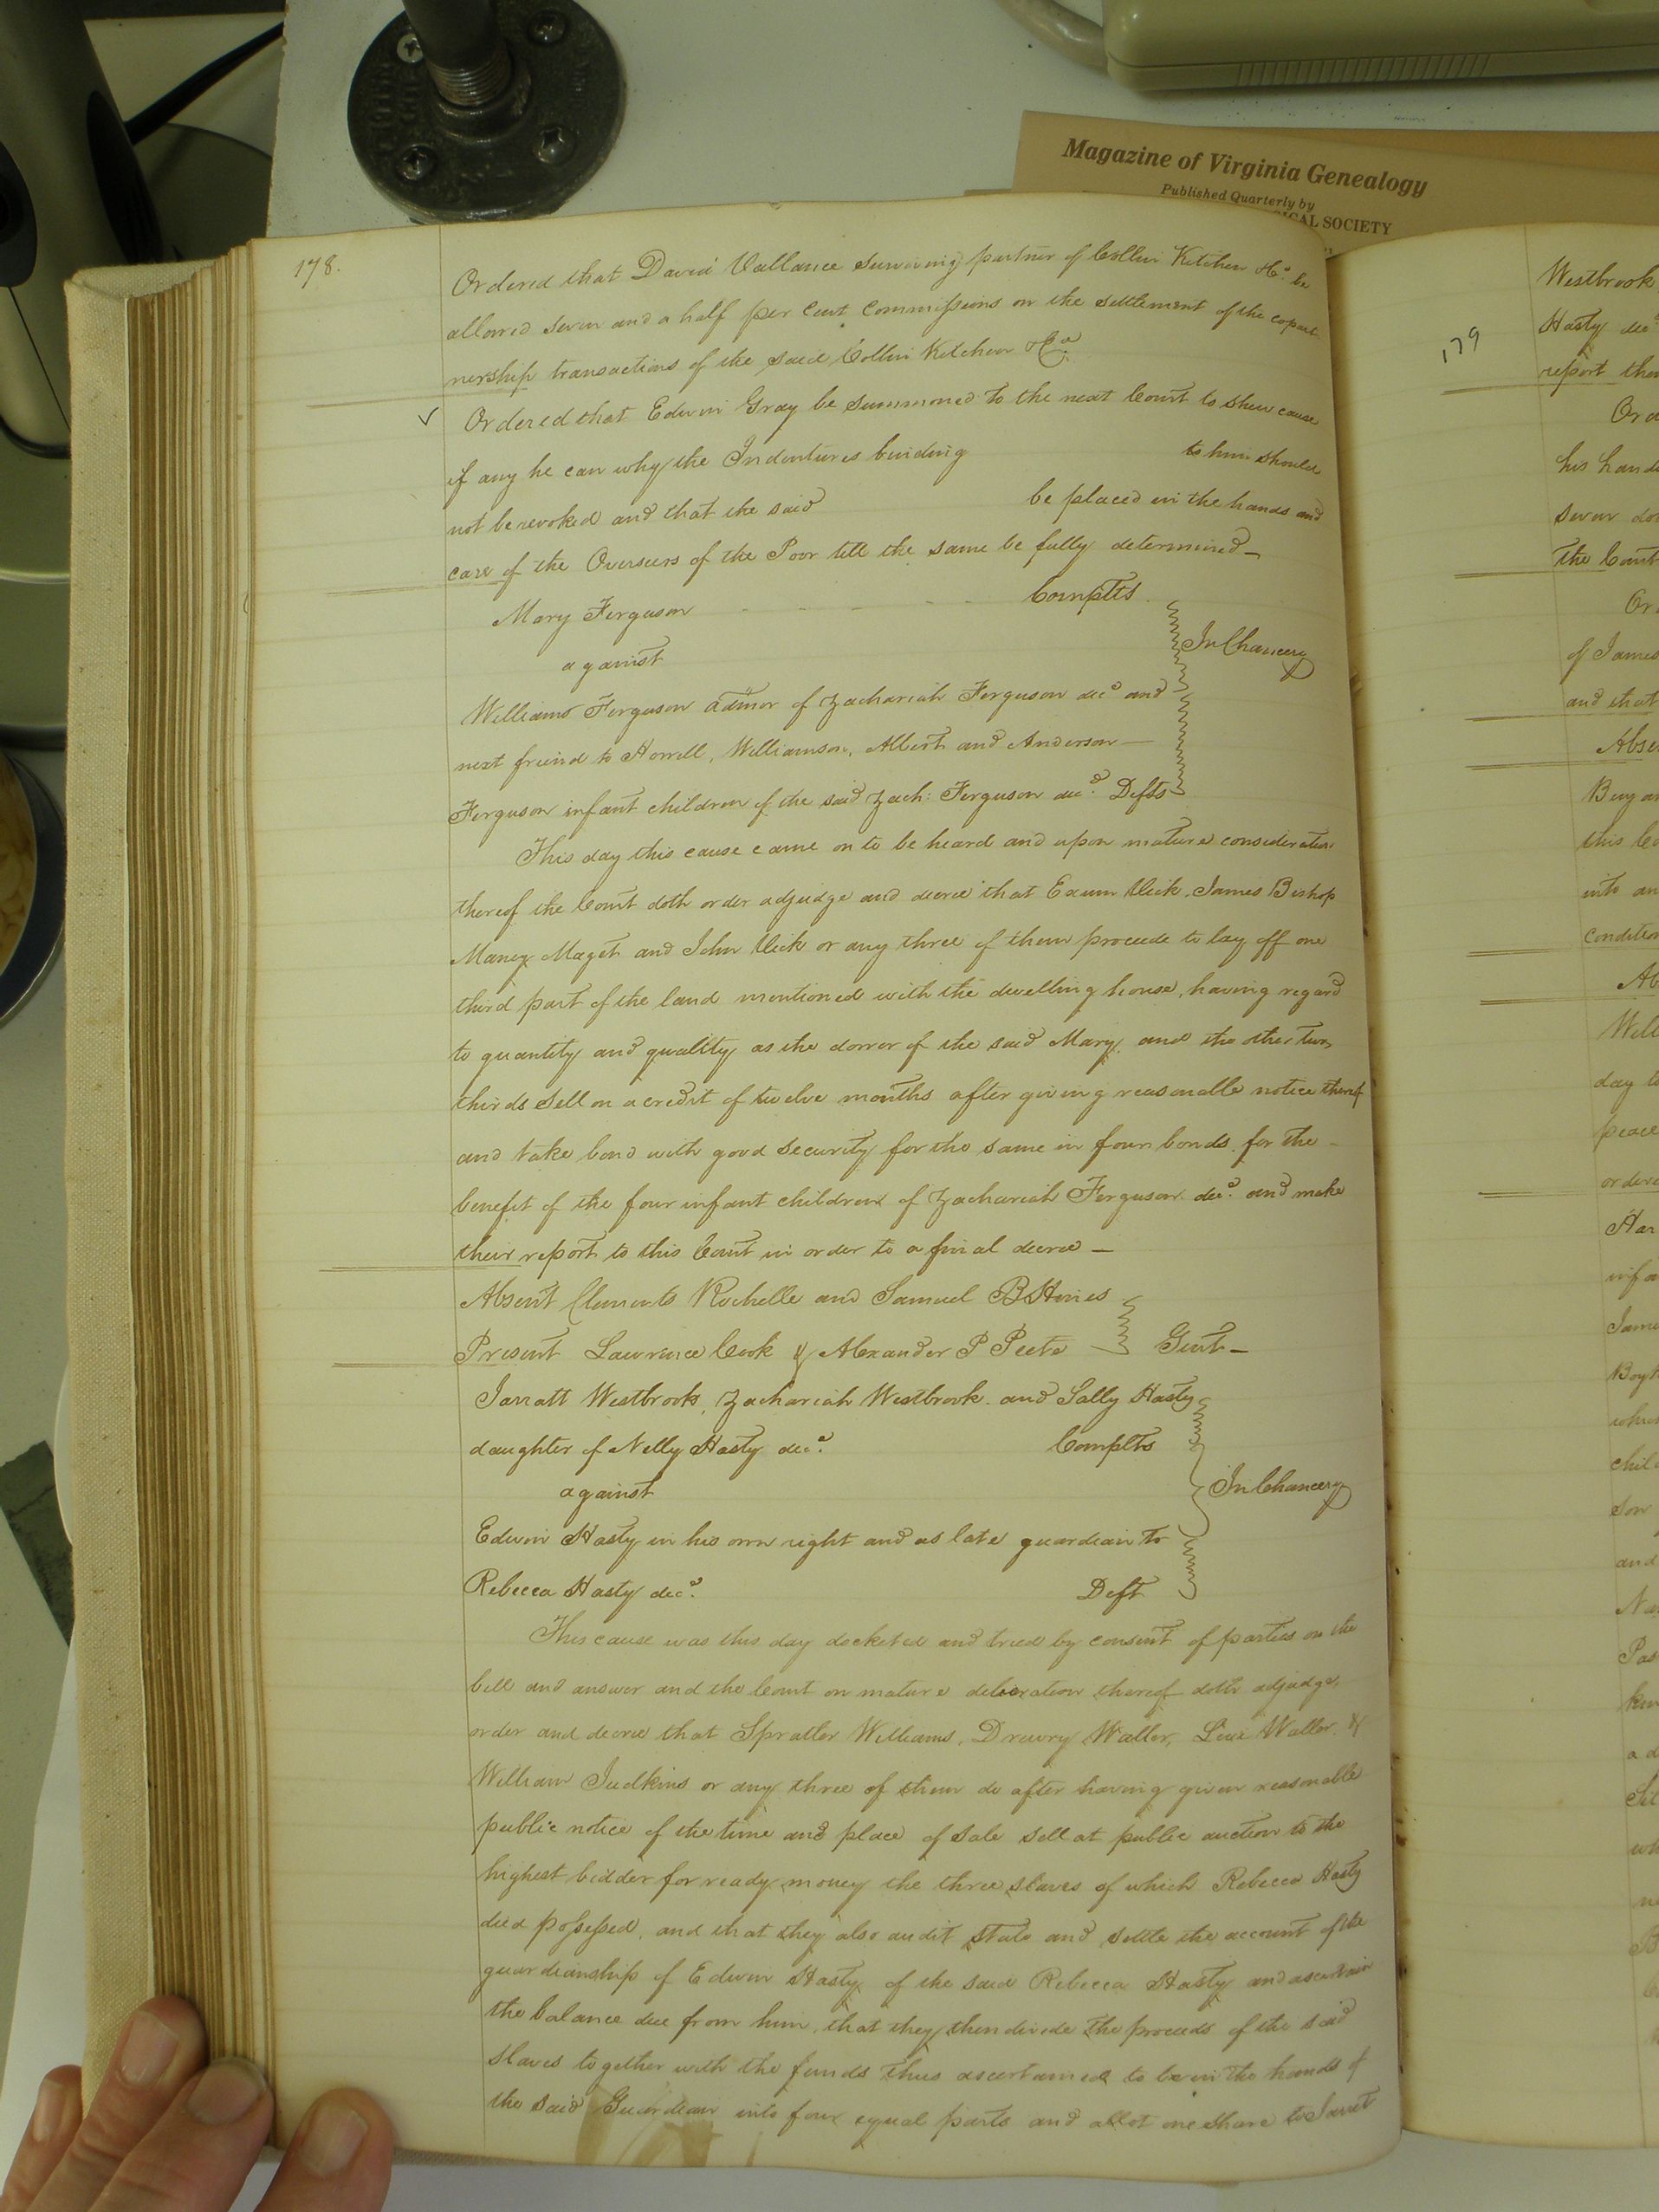 Magazine of Virginia Genealogy
Published Quarterly by
ICAL SOCIETY
178.
Ordered that David Vallance surviving partner of Collin Kitchen &Co be
allowed seven and a half per cent commissions on the settlement of the copart
nership transactions of the said Collin Kitchen &Co
Ordered that Edwin Gray be summoned to the next Court to shew cause
if any he can why the Indentures binding to him should
not be revoked and that the said be placed in the hands and
care of the Overseers of the Poor till the same be fully determined
Mary Ferguson Complts
against
In Chancery
Williams Ferguson admor of Zachariah Ferguson decd and
next friend to Horrell, Williamson, Albert and Anderson
Ferguson infant children of the said Zach: Ferguson decd Defts
This day this cause came on to be heard and upon mature consideration
thereof the Court doth order adjudge and decree that Exum Vick, James Bishop
Maney Maget and John Vick or any three of them proceede to lay off one
third part of the land mentioned with the dwelling house, having regard
to quantity and quality as the dower of the said Mary, and the other two
thirds sell on a credit of twelve months after giving reasonable notice thereof
and take bond with good security for the same in four bonds for the
benefit of the four infant children of Zachariah Ferguson decd and make
their report to this Court in order to a final decree
Absent Clements Rochelle and Samuel B Hines
Present Lawrence Cook & Alexander P Peete Gent
Jarratt Westbrook, Zachariah Westbrook and Sally Hasty
daughter of Nelly Hasty decd. Complts
against
In Chancery
Edwin Hasty in his own right and as late guardian to
Rebecca Hasty decd. Deft
This cause was this day docketed and tried by consent of parties on the
bill and answer and the Court on mature deliberation thereof doth adjudge,
order and decree that Spratler Williams, Drewry Waller, Levi Waller &
William Judkins or any three of them do after having given reasonable
public notice of the time and place of sale sell at public auction to the
highest bidder for ready money the three slaves of which Rebecca Hasty
died possessed, and that they also audit state and settle the account of the
guardianship of Edwin Hasty of the said Rebecca Hasty and ascertain
the balance due from him, that they then divide the proceeds of the said
slaves together with the funds thus ascertained to be in the hands of
the said Guardian into four equal parts and allot one share to Jarret
179
Westbrook
Hasty decd
report the
his hand
the Court
of James
and that
this
into an
condition
day to
peace
Boyk
and